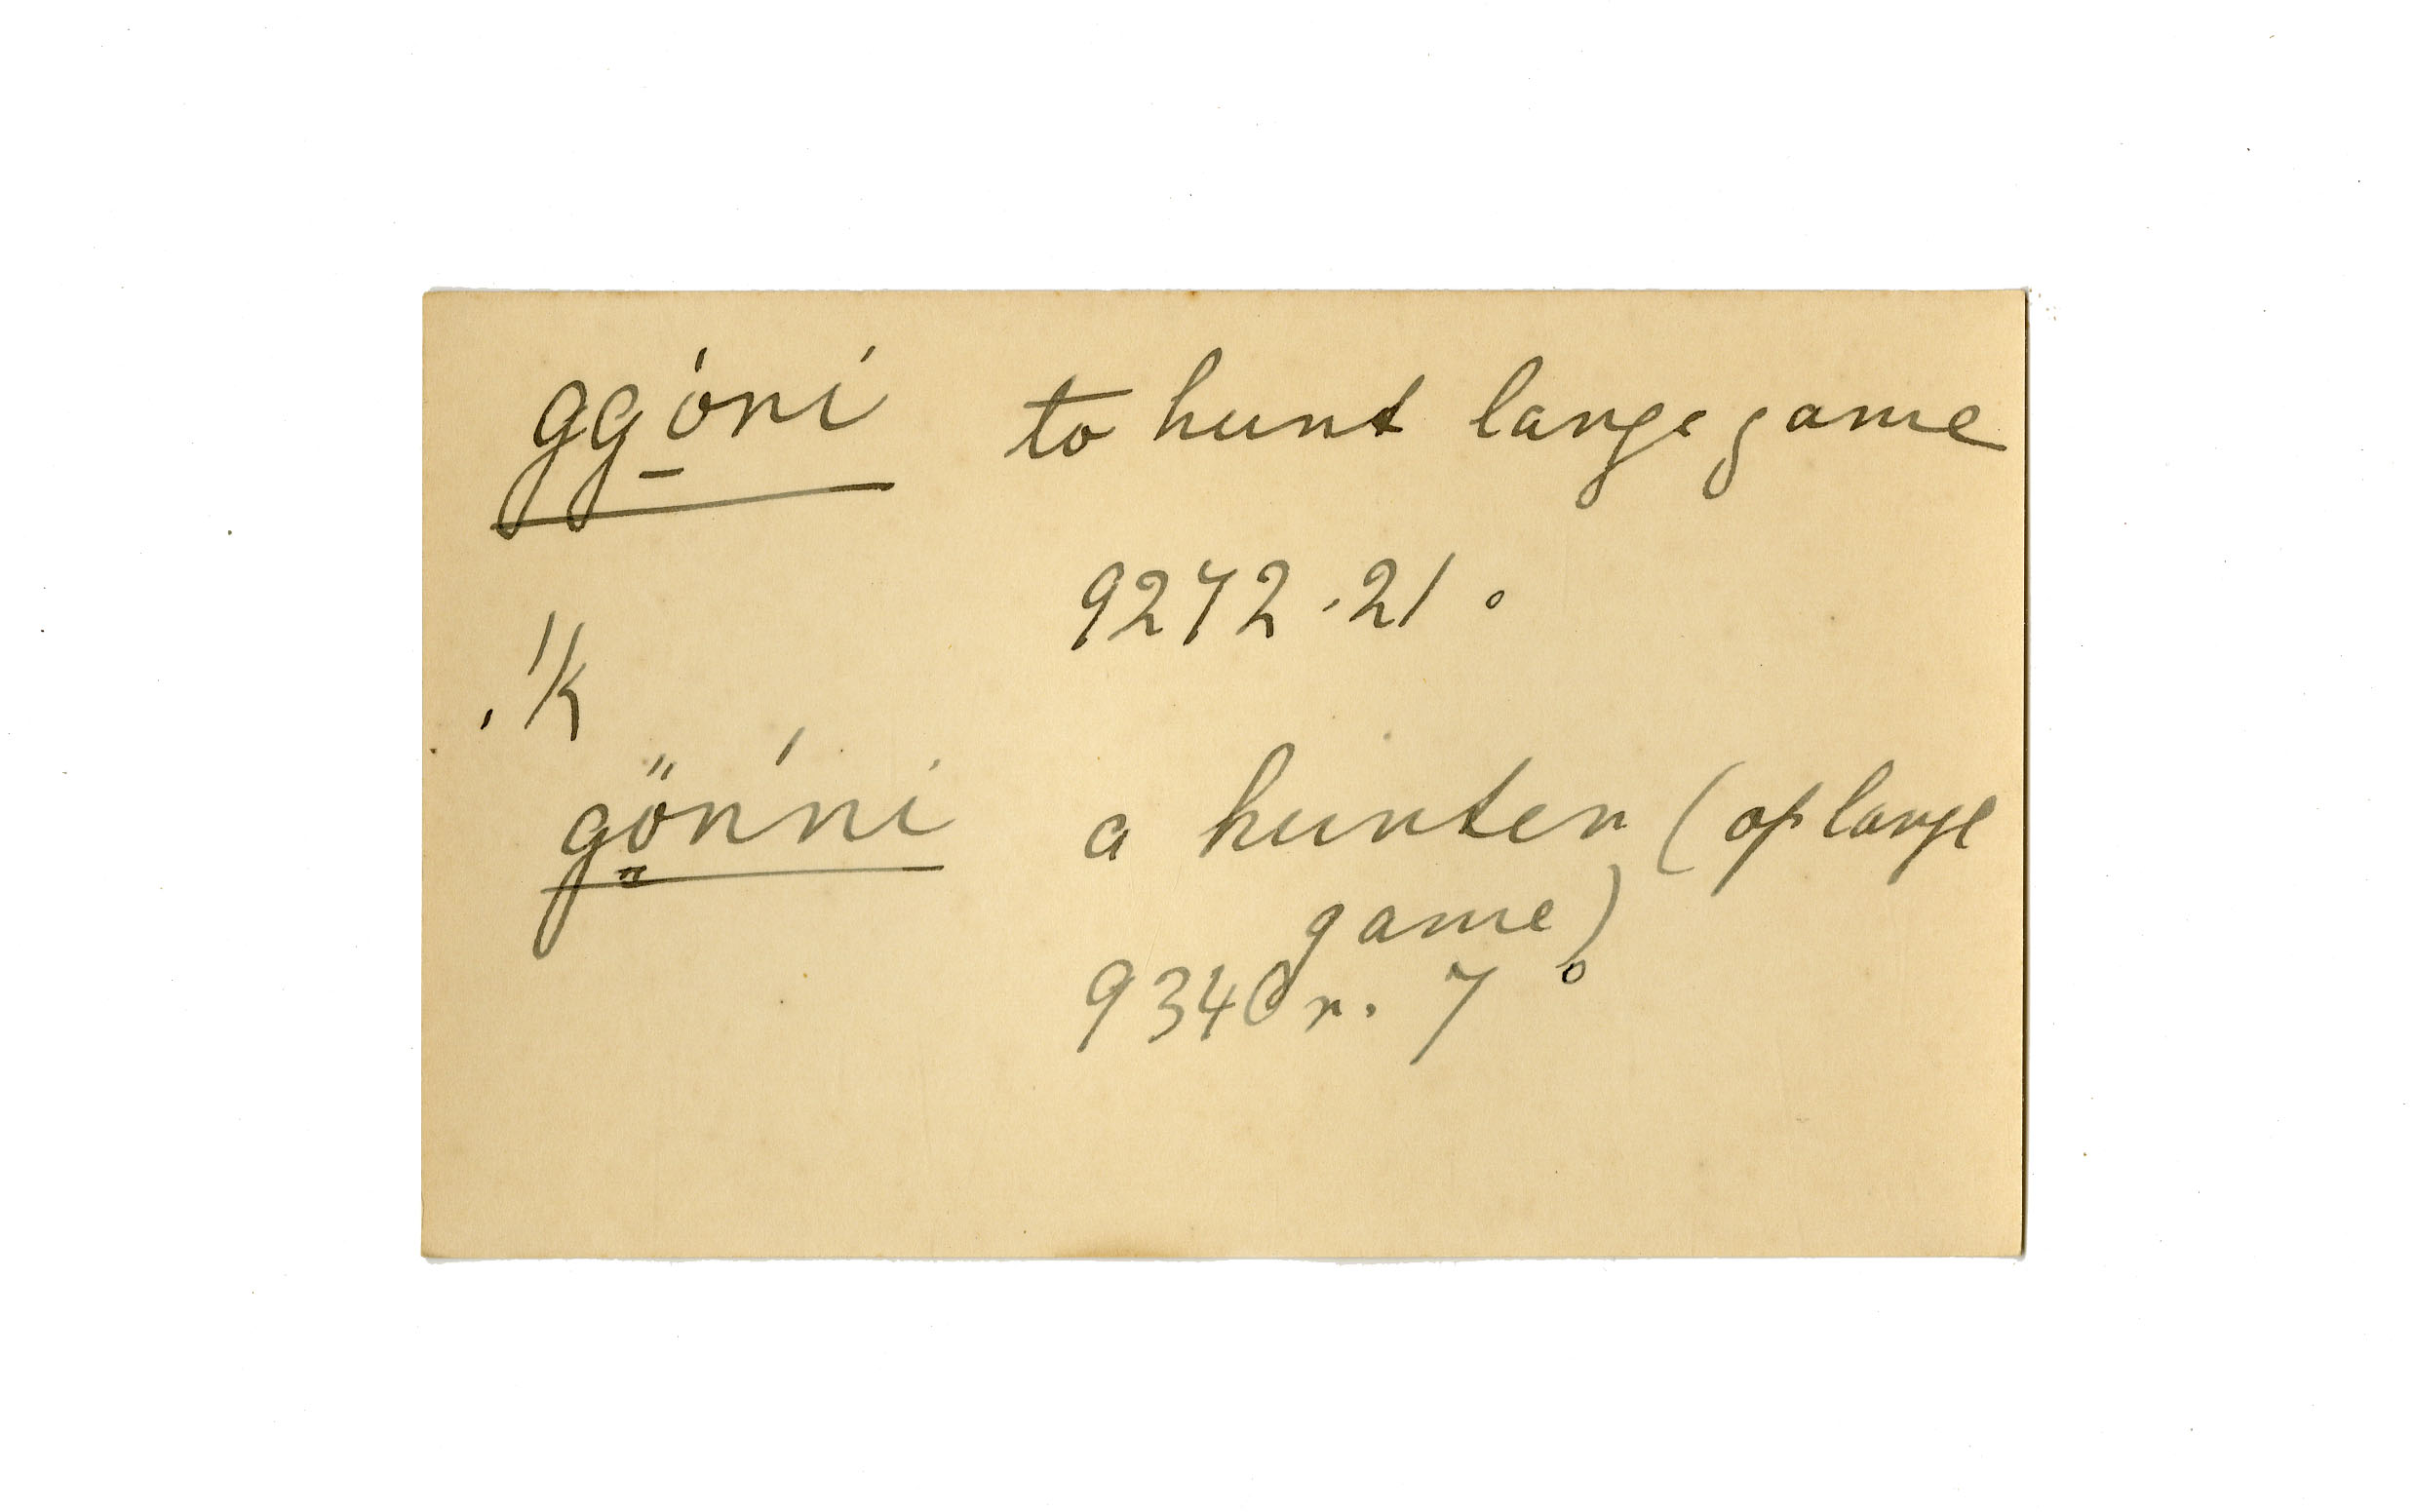 ggó̱ni to hunt large game
9272.21°
!k
gö̤ńni a hunter (of large
game)
9340 r. 7°